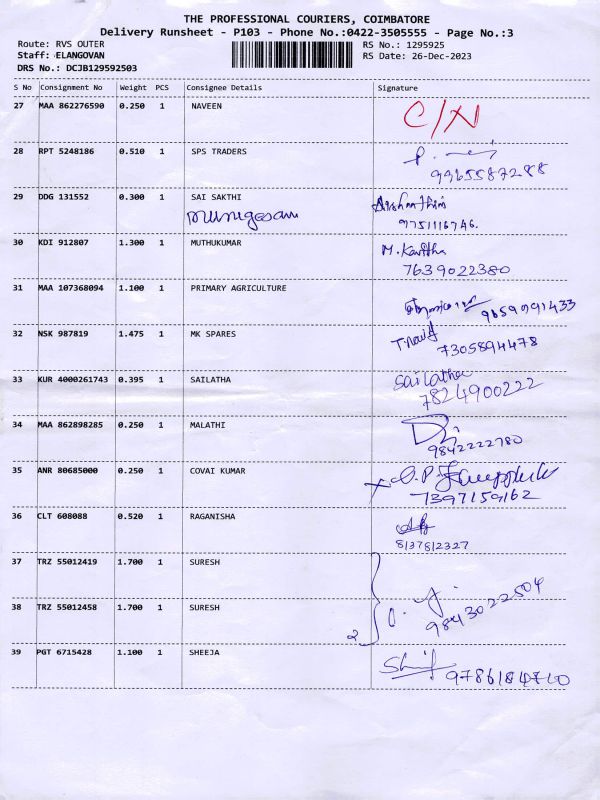 THE PROFESSIONAL COURIERS, COIMBATORE
Delivery Runsheet - P103 - Phone No.:0422-3505555 - Page No.:3
Route: RVS OUTER RS No.: 1295925
Staff: ELANGOVAN RS Date: 26-Dec-2023
DRS No.: DCJB129592503
S No Consignment No Weight PCS Consignee Details Signature
27 MAA 862276590 0.250 1 NAVEEN C/N
28 RPT 5248186 0.510 1 SPS TRADERS
9965587288
29 DDG 131552 0.300 1 SAI SAKTHI
Murugesan 9751116746.
30 KDI 912807 1.300 1 MUTHUKUMAR M. Kavitha
7639022380
31 MAA 107368094 1.100 1 PRIMARY AGRICULTURE
9659091433
32 NSK 987819 1.475 1 MK SPARES
7305894478
33 KUR 4000261743 0.395 1 SAILATHA Sailatha
7824900222
34 MAA 862898285 0.250 1 MALATHI
9842222780
35 ANR 80685000 0.250 1 COVAI KUMAR
7397159162
36 CLT 608088 0.520 1 RAGANISHA
8137812327
37 TRZ 55012419 1.700 1 SURESH
38 TRZ 55012458 1.700 1 SURESH 2 9843022504
39 PGT 6715428 1.100 1 SHEEJA